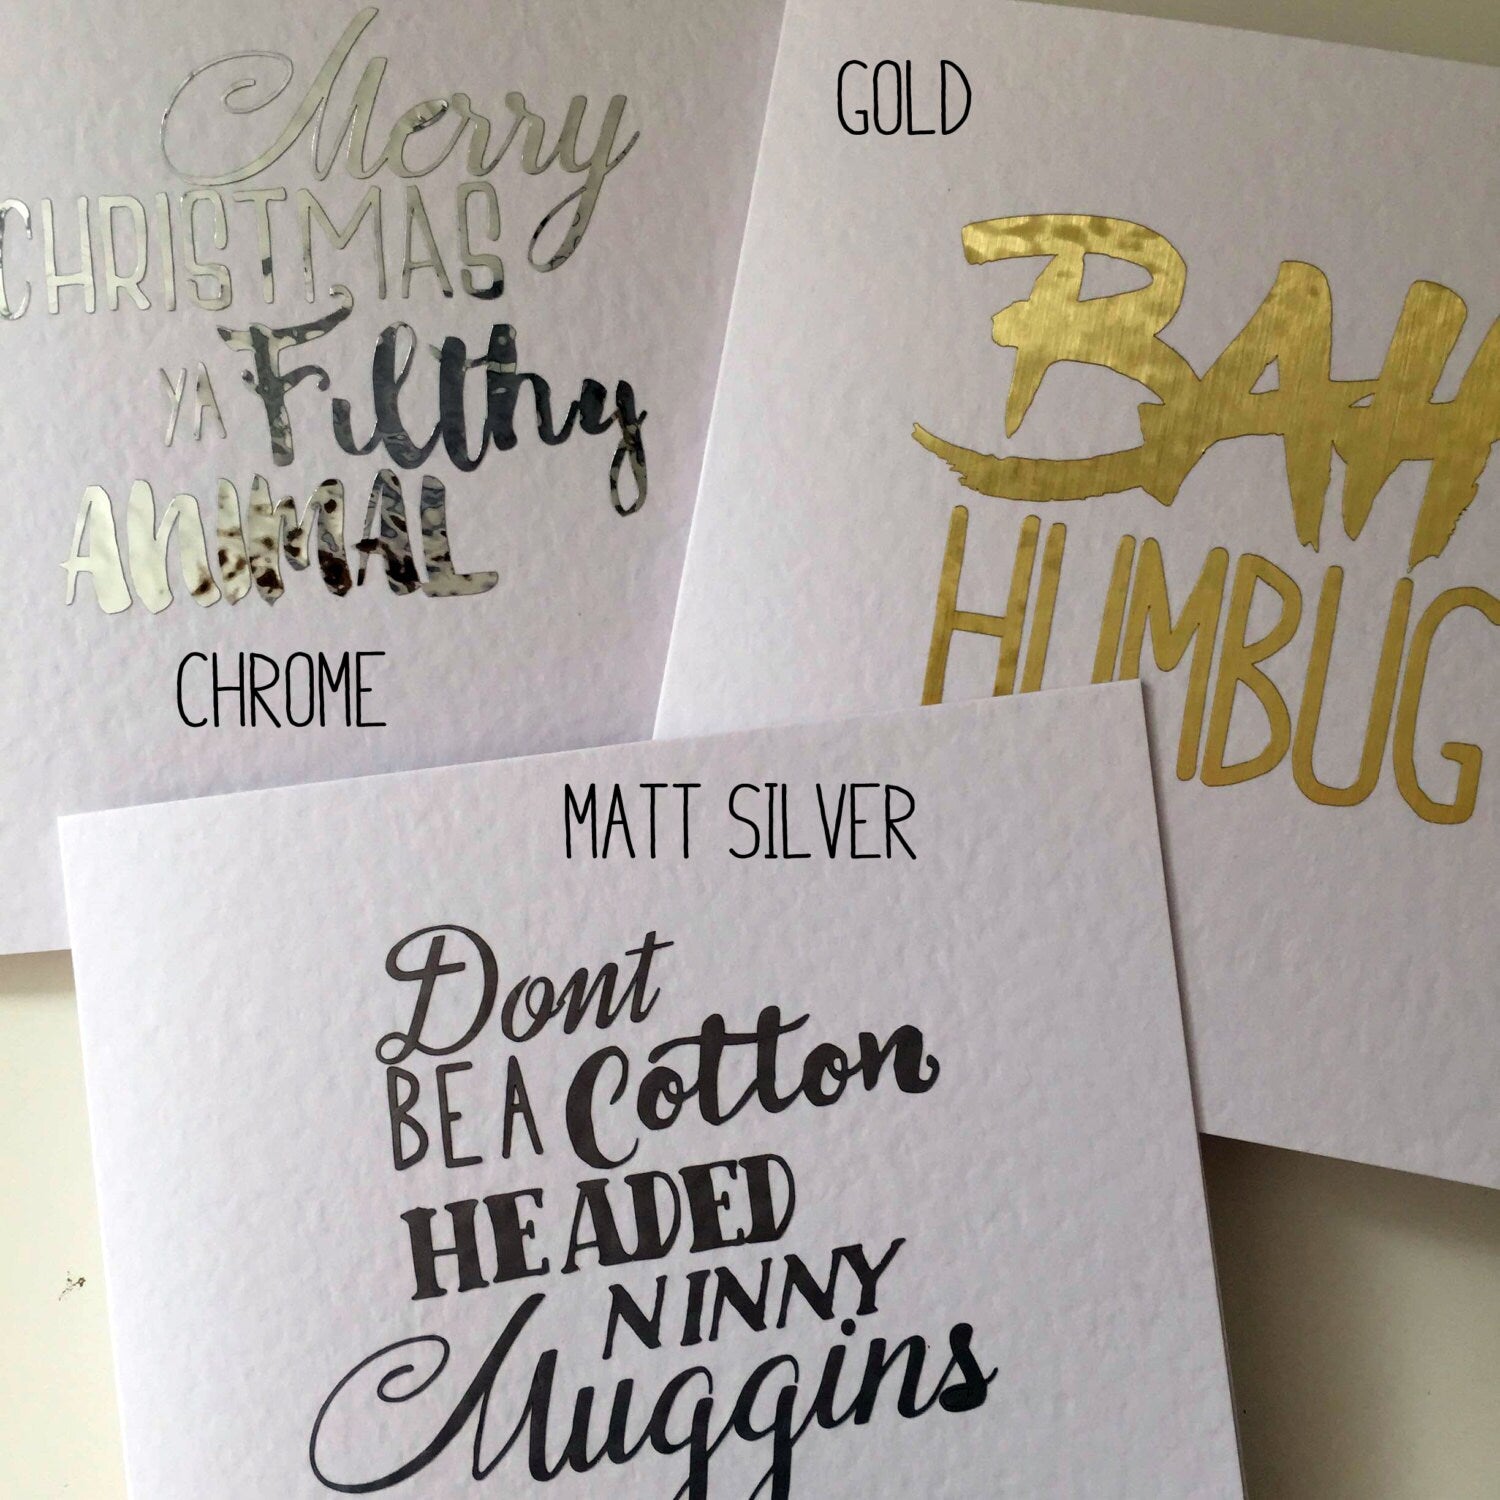 Merry
CHRISTMAS
YA Filthy
ANIMAL
CHROME
GOLD
BAH
HUMBUG
MATT SILVER
Dont
BE A Cotton
HEADED
NINNY
Muggins